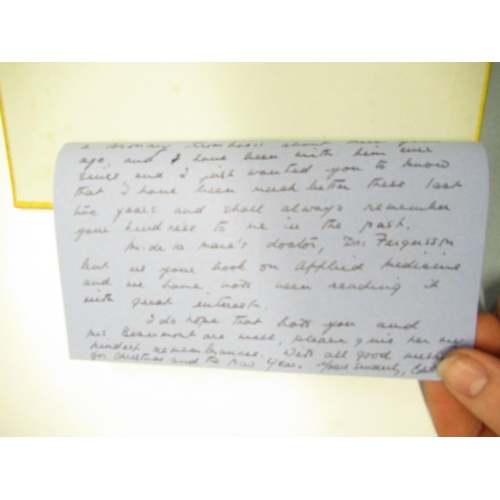 a coronary thrombosis about
ago, and I have been with him ever
since and I just wanted you to know
that I have been much better these last
two years and shall always remember
your kindness to me in the past.
Mr. de la Mare's doctor, Dr. Fergusson
lent us your book on Applied Medicine
and we have both been reading it
with great interest.
I do hope that both you and
Mrs. Beaumont are well, please give her my
kindest remembrances. With all good wishes
for Christmas and the New Year. Yours sincerely,